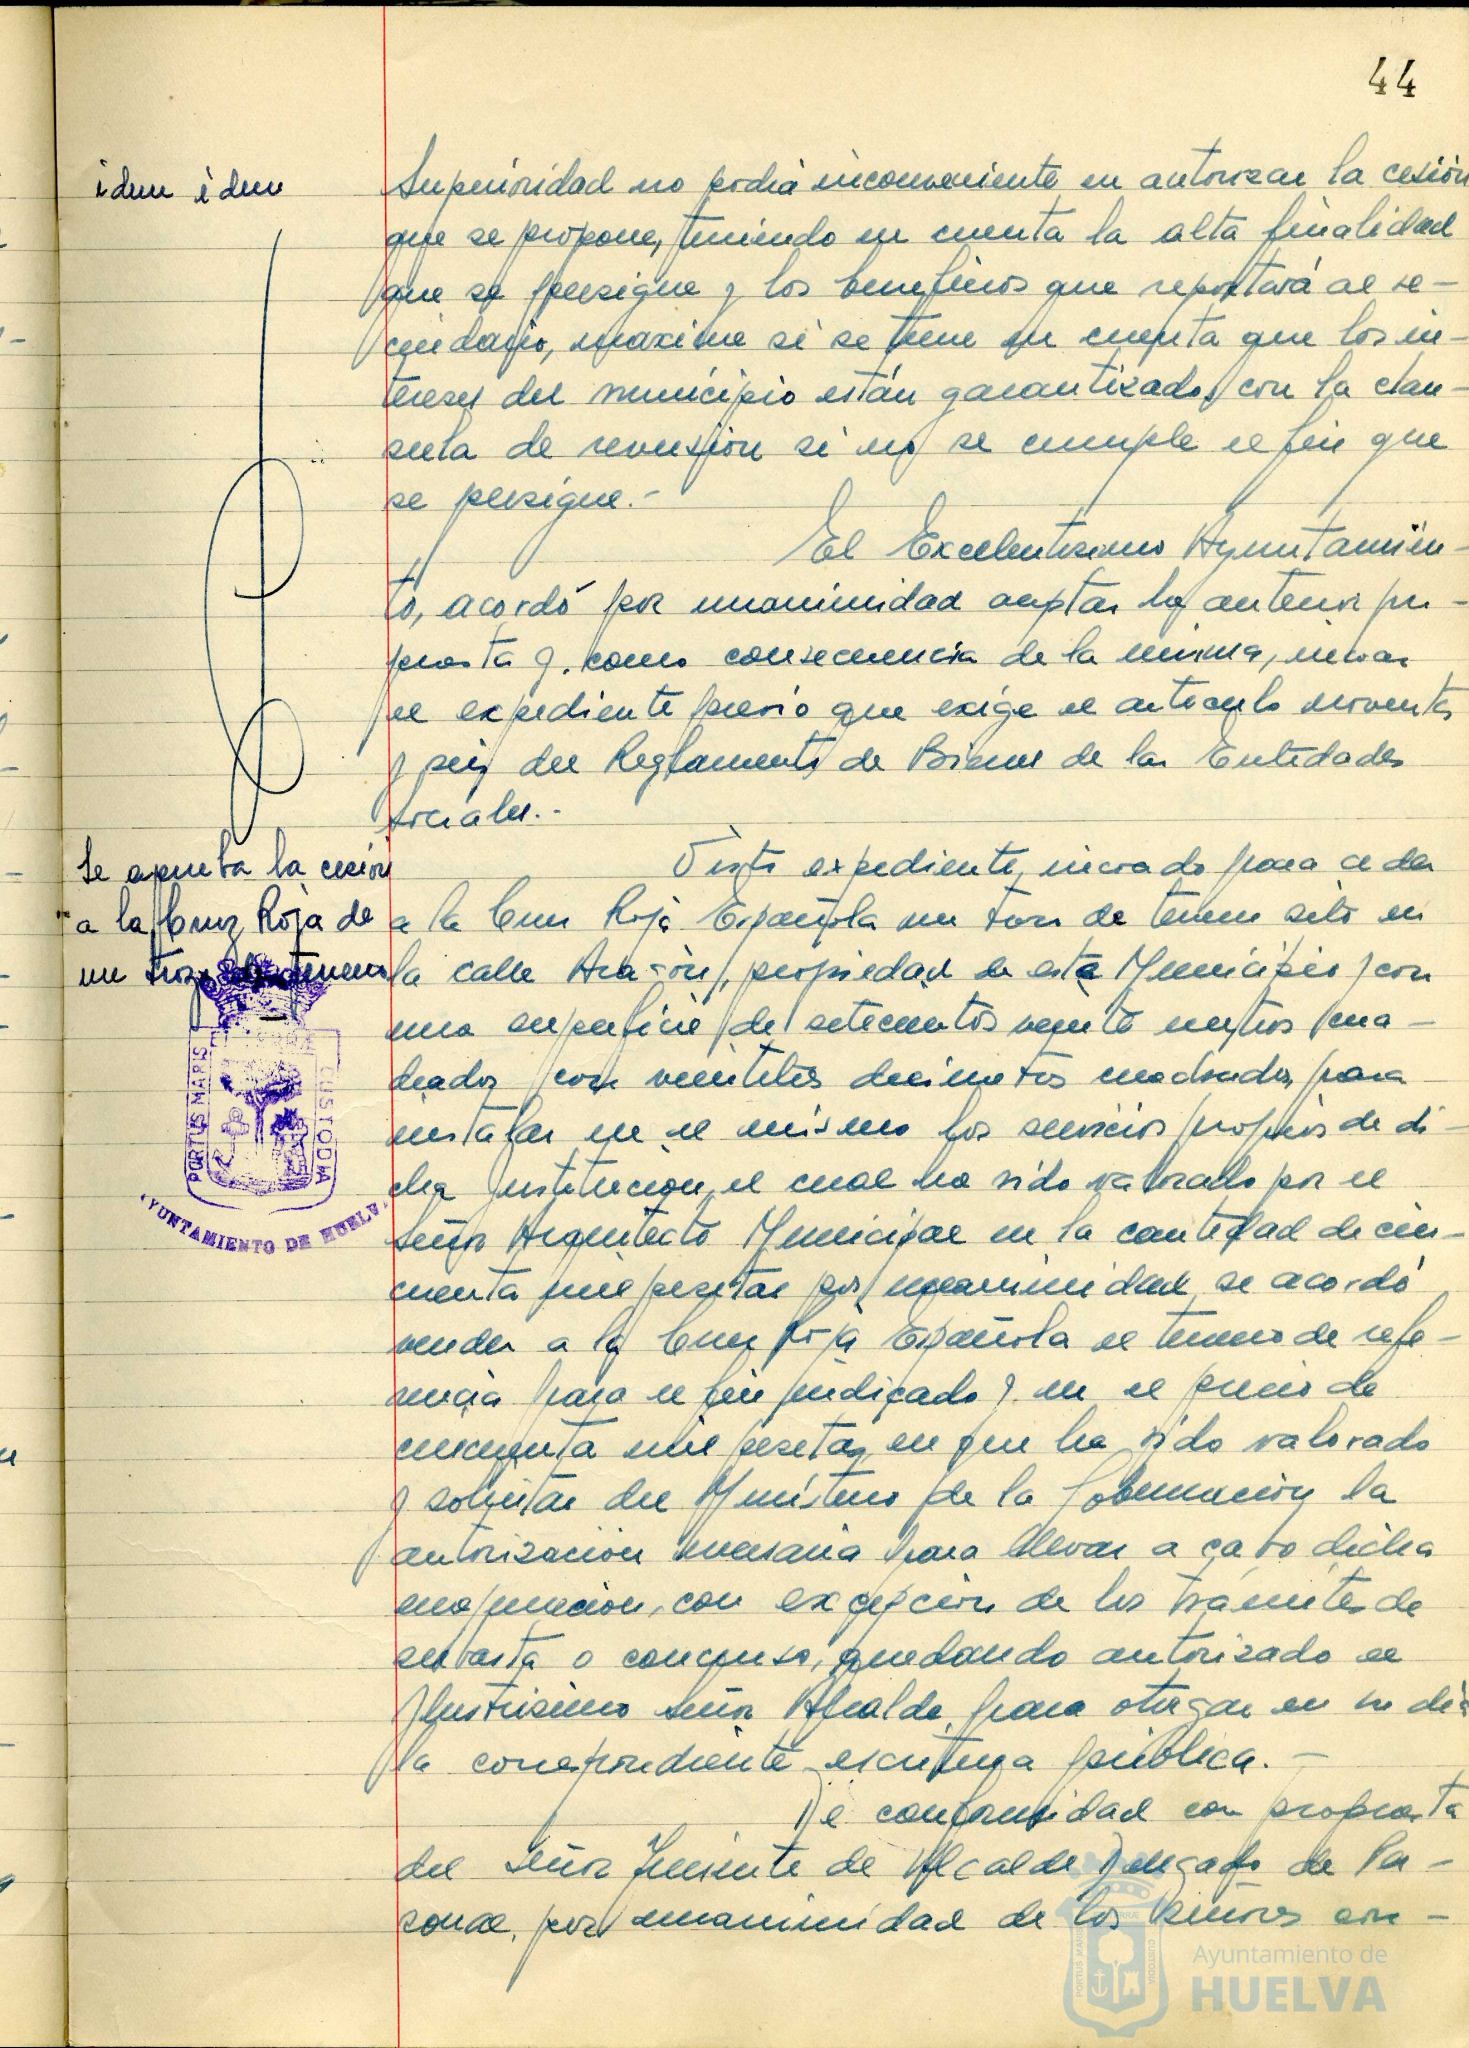 44
idem idem
Superioridad no podrá inconveniente en autorizar la cesión
que se propone, teniendo en cuenta la alta finalidad
que se persigue y los beneficios que reportará al ve-
cindario, maxime si se tiene en cuenta que los in-
tereses del municipio están garantizados con la clau-
sula de reversión si no se cumple el fin que
se persigue.-
El Excelentisimo Ayuntamien-
to, acordó por unanimidad aceptar la anterior pro-
puesta y, como consecuencia de la misma, iniciar
el expediente previo que exige el articulo noventa
y seis del Reglamento de Bienes de las Entidades
Locales.-
Se aprueba la cesión
a la Cruz Roja de
un trozo de terreno
Visto expediente, iniciado para ceder
a la Cruz Roja Española un trozo de terreno sito en
la calle Aragón, propiedad de este Municipio y con
una superficie de setecientos veinte metros cua-
drados con veintitrés decimetros cuadrados, para
instalar en el mismo los servicios propios de di-
cha Institución, el cual ha sido valorado por el
Señor Arquitecto Municipal en la cantidad de cin-
cuenta mil pesetas por unanimidad se acordó
vender a la Cruz Roja Española el terreno de refe-
rencia para el fin indicado y en el precio de
cincuenta mil pesetas en que ha sido valorado
y solicitar del Ministerio de la Gobernación la
autorización necesaria para llevar a cabo dicha
enajenación, con excepción de los trámites de
subasta o concurso, quedando autorizado el
Ilustrisimo Señor Alcalde para otorgar en su dia
la correspondiente escritura pública.-
De conformidad con propuesta
del Señor Teniente de Alcalde Delegado de Per-
sonal, por unanimidad de los Señores con-
PORTUS MARIS
CUSTODIA
AYUNTAMIENTO DE HUELVA
Ayuntamiento de
HUELVA